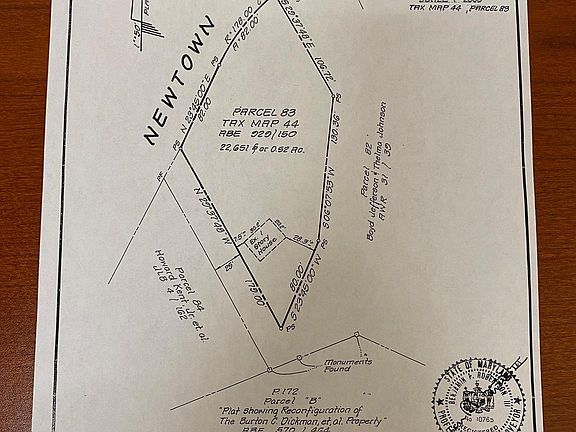 TAX MAP 44, PARCEL 83
1"=50'
NEWTOWN
R=178.00'
A=82.00'
S 29°37'48" E
106.72'
N 23°45'00" E
82.00'
PS
PS
PS
PF
PARCEL 83
TAX MAP 44
RBE 929/150
22,651 ⌀ or 0.52 Ac.
130.36'
S 06°07'53" W
Parcel 82
Boyd Jefferson & Thelma Johnson
AWR 31 / 39
N 29°37'48" W
175.00'
Ex.
Story
House
PS
PS
80.00'
S 23°45'00" W
PS
Parcel 84
Howard Kent, Jr. et. al.
JLB 4 / 162
Monuments
Found
P. 172
Parcel "B"
"Plat Showing Reconfiguration of
The Burton C. Dickman, et, al. Property"
RBE 570 / 464
STATE OF MARYLAND